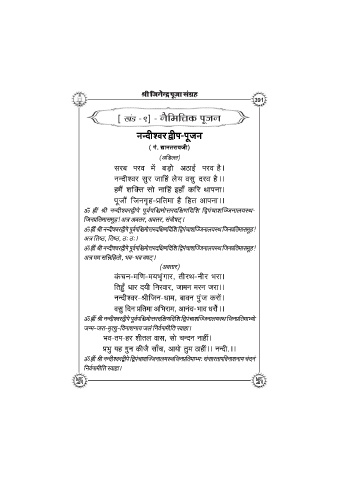 श्री जिनेन्द्र पूजा संग्रह
391
[ खंड - ९ ] - नैमित्तिक पूजन
नन्दीश्वर द्वीप-पूजन
( पं. द्यानतरायजी)
(अडिल्ल)
सरब परव में बड़ो अठाई परव है।
नन्दीश्वर सुर जाहिं लेय वसु दरव है।।
हमैं शक्ति सो नाहिं इहाँ करि थापना।
पूजौं जिनगृह-प्रतिमा है हित आपना।।
ॐ ह्रीं श्री नन्दीश्वरद्वीपे पूर्वपश्चिमोत्तरदक्षिणदिशि द्विपंचाशज्जिनालयस्थ-
जिनप्रतिमासमूह ! अत्र अवतर, अवतर, संवौषट्।
ॐ ह्रीं श्री नन्दीश्वरद्वीपे पूर्वपश्चिमोत्तरदक्षिणदिशि द्विपंचाशज्जिनालयस्थ जिनप्रतिमासमूह !
अत्र तिष्ठ, तिष्ठ, ठः ठः।
ॐ ह्रीं श्री नन्दीश्वरद्वीपे पूर्वपश्चिमोत्तरदक्षिणदिशि द्विपंचाशज्जिनालयस्थ जिनप्रतिमासमूह !
अत्र मम सन्निहितो, भव-भव वषट्।
(अवतार)
कंचन-मणि-मयभृंगार, तीरथ-नीर भरा।
तिहुँ धार दयी निरवार, जामन मरन जरा।।
नन्दीश्वर-श्रीजिन-धाम, बावन पुंज करों।
वसु दिन प्रतिमा अभिराम, आनंद-भाव धरौं।।
ॐ ह्रीं श्री नन्दीश्वरद्वीपे पूर्वपश्चिमोत्तरदक्षिणदिशि द्विपंचाशज्जिनालयस्थ जिनप्रतिमाभ्यो
जन्म-जरा-मृत्यु-विनाशनाय जलं निर्वपामीति स्वाहा।
भव-तप-हर शीतल वास, सो चन्दन नाहीं।
प्रभु यह गुन कीजै साँच, आयो तुम ठाहीं।। नन्दी.।।
ॐ ह्रीं श्री नन्दीश्वरद्वीपे द्विपंचाशज्जिनालयस्थजिनप्रतिमाभ्यः संसारतापविनाशनाय चंदनं
निर्वपामीति स्वाहा।